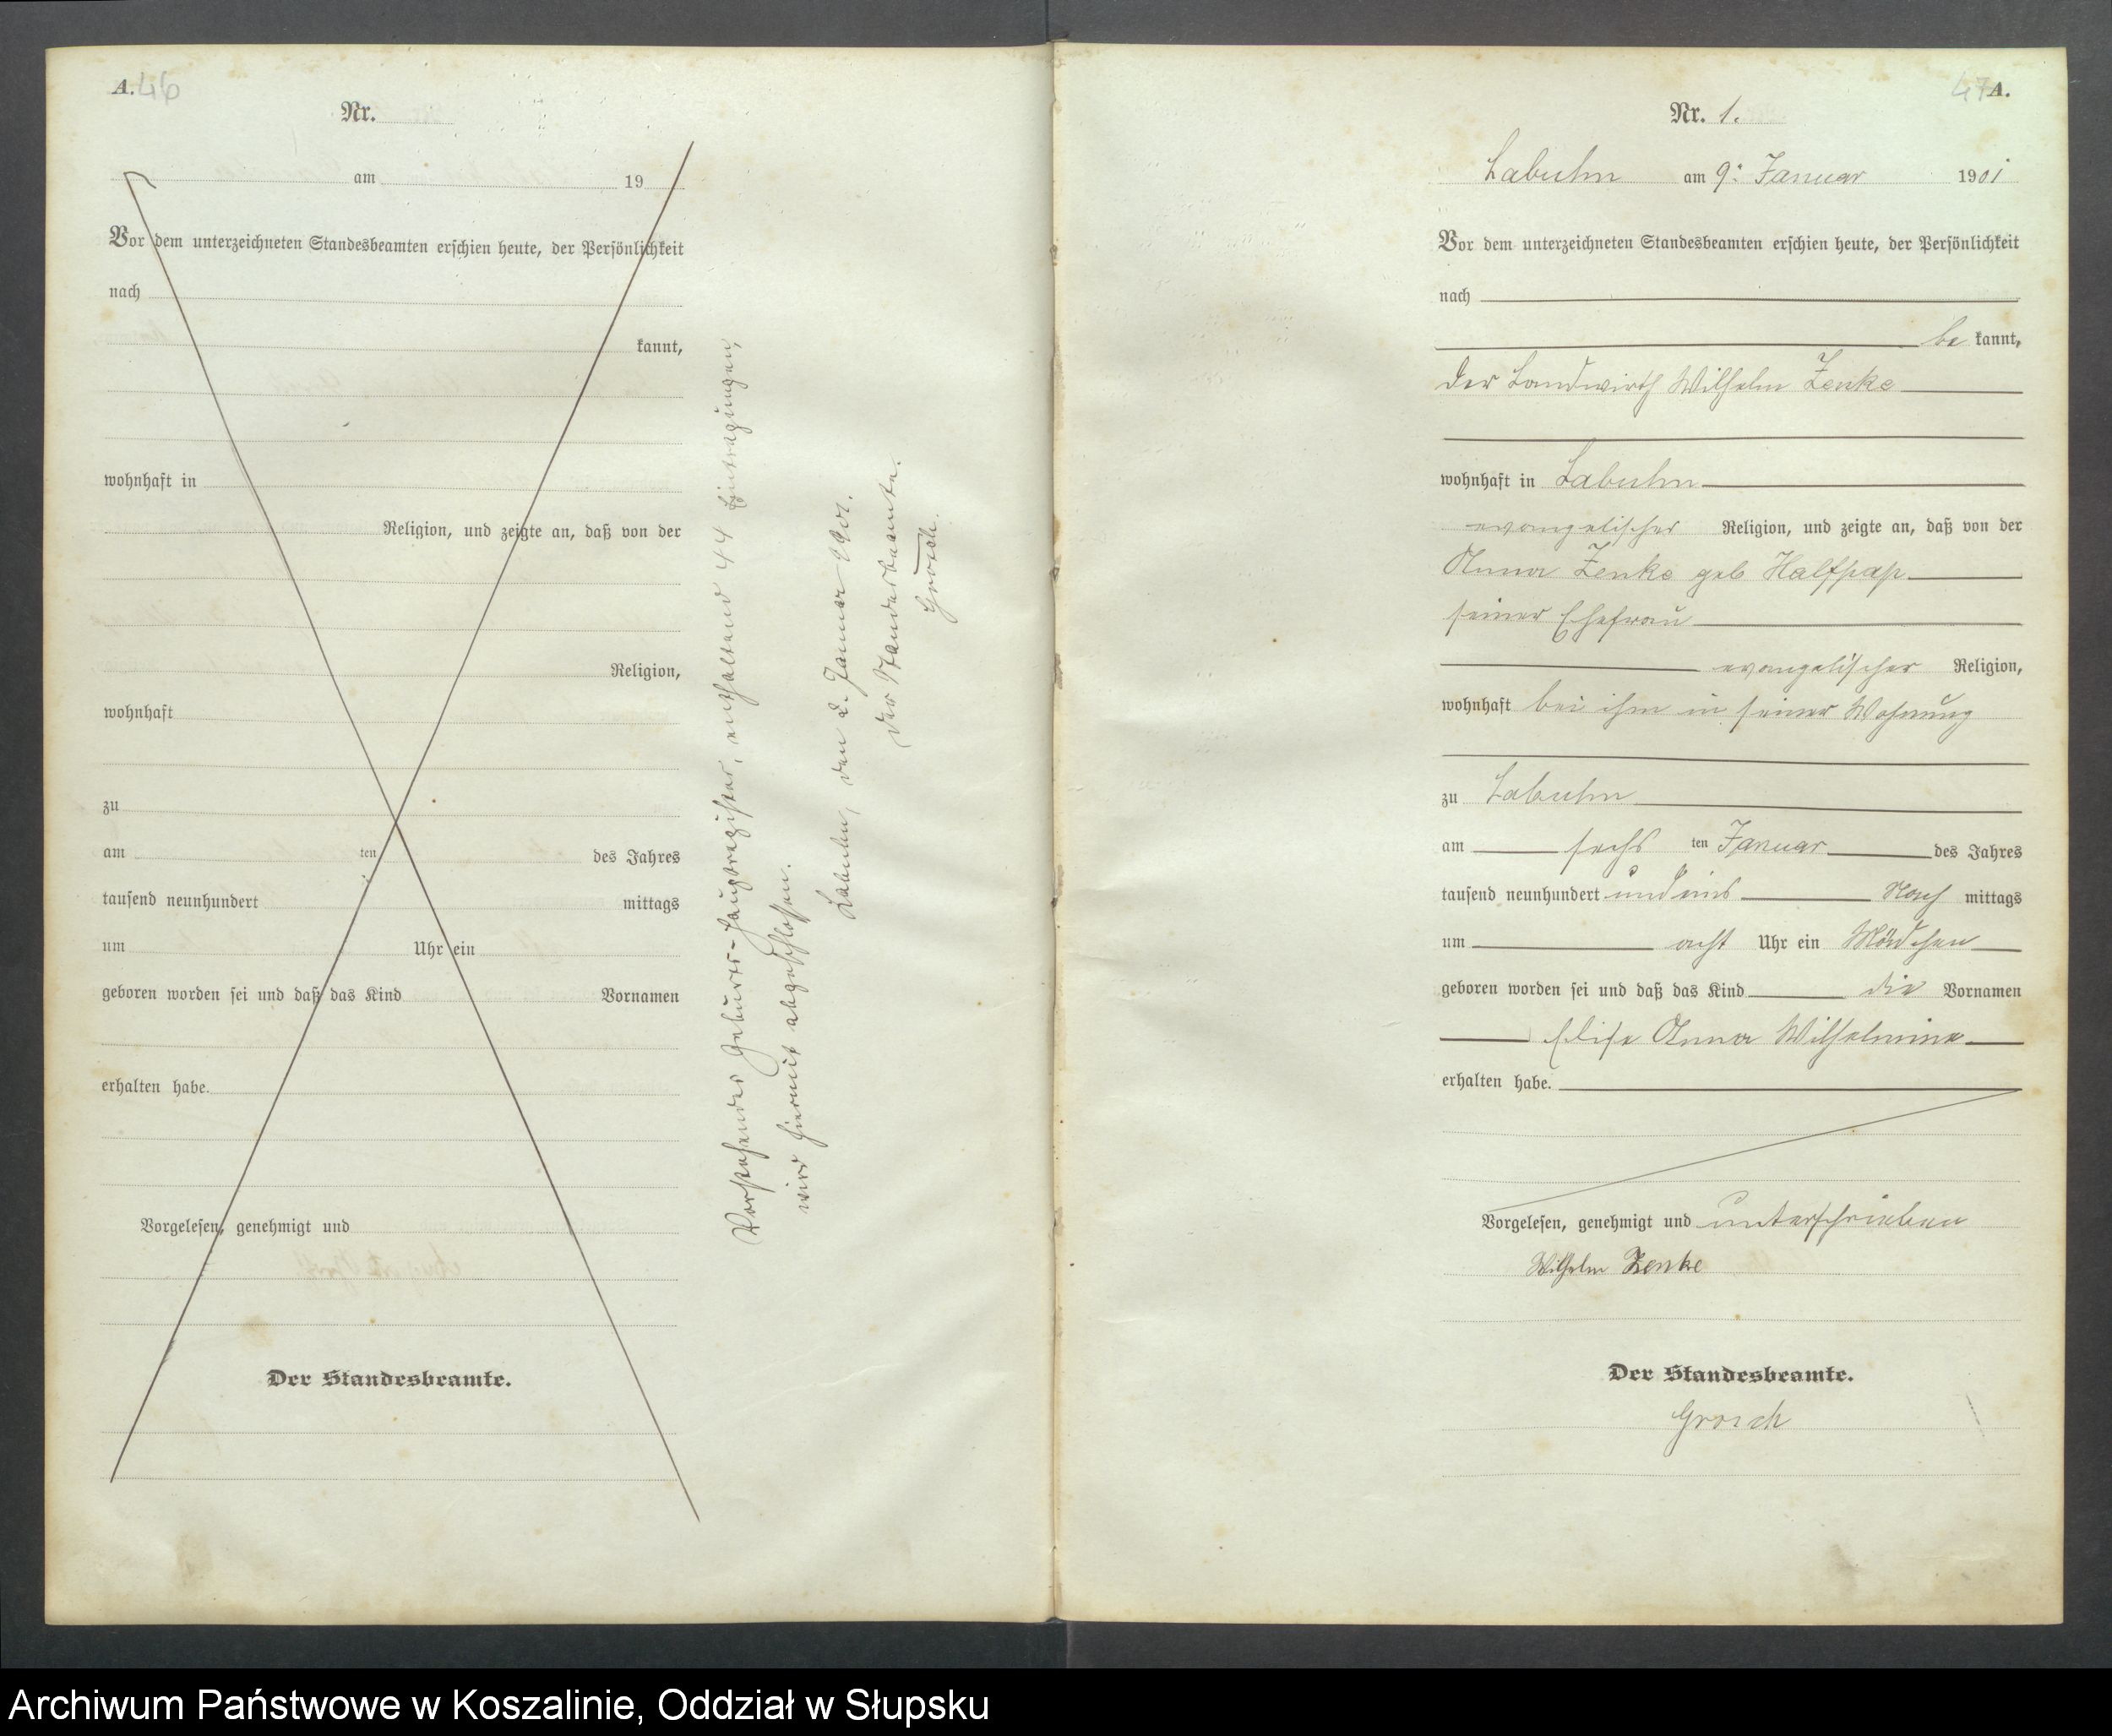 A. 46
Nr.
am 19
Vor dem unterzeichneten Standesbeamten erschien heute, der Persönlichkeit
nach
kannt,
wohnhaft in
Religion, und zeigte an, daß von der
Religion,
wohnhaft
zu
am ten des Jahres
tausend neunhundert mittags
um Uhr ein
geboren worden sei und daß das Kind Vornamen
erhalten habe.
Vorgelesen, genehmigt und
Der Standesbeamte.
Vorstehendes Geburts-Hauptregister, enthaltend 44 Eintragungen,
wird hiermit abgeschlossen.
Labuhn, den 2. Januar 1901.
Der Standesbeamte.
Grosch.
47 A.
Nr. 1.
Labuhn am 9. Januar 1901
Vor dem unterzeichneten Standesbeamten erschien heute, der Persönlichkeit
nach
be kannt,
der Landwirth Wilhelm Zenke
wohnhaft in Labuhn
evangelischer Religion, und zeigte an, daß von der
Anna Zenke geb Halfpap
seiner Ehefrau
evangelischer Religion,
wohnhaft bei ihm in seiner Wohnung
zu Labuhn
am sechs ten Januar des Jahres
tausend neunhundert und eins Nach mittags
um acht Uhr ein Mädchen
geboren worden sei und daß das Kind die Vornamen
Elise Anna Wilhelmine
erhalten habe.
Vorgelesen, genehmigt und unterschrieben
Wilhelm Zenke
Der Standesbeamte.
Grosch
Archiwum Państwowe w Koszalinie, Oddział w Słupsku